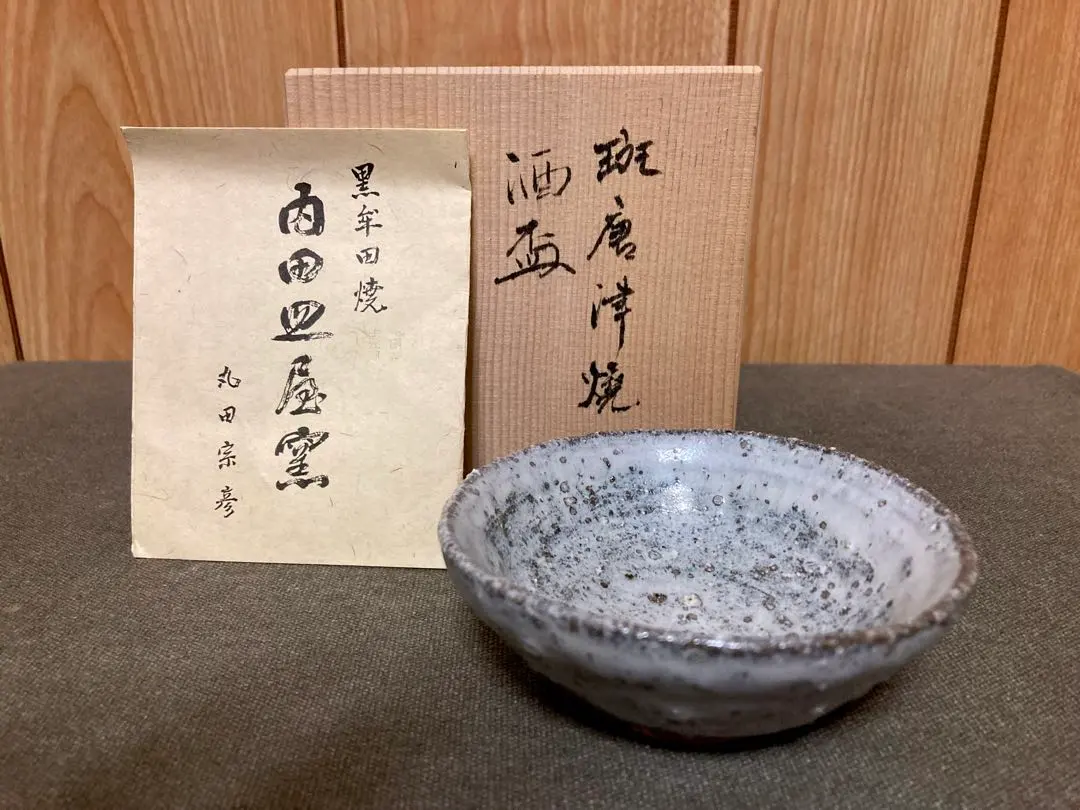 黒牟田焼
内田皿屋窯
丸田宗彦
斑唐津焼
酒盃